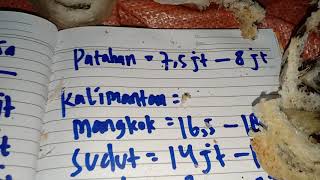 Patahan = 7,5 jt - 8 jt
Kalimantan =
mangkok = 16,5 -
sudut = 14 jt -